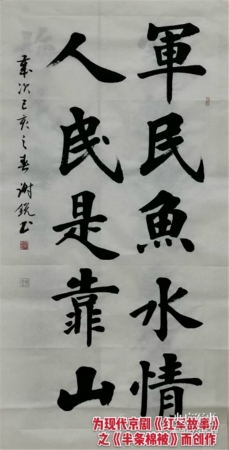 軍民魚水情
人民是靠山
歲次己亥之春 谢锐书
为现代京剧《红军故事》
之《半条棉被》而创作